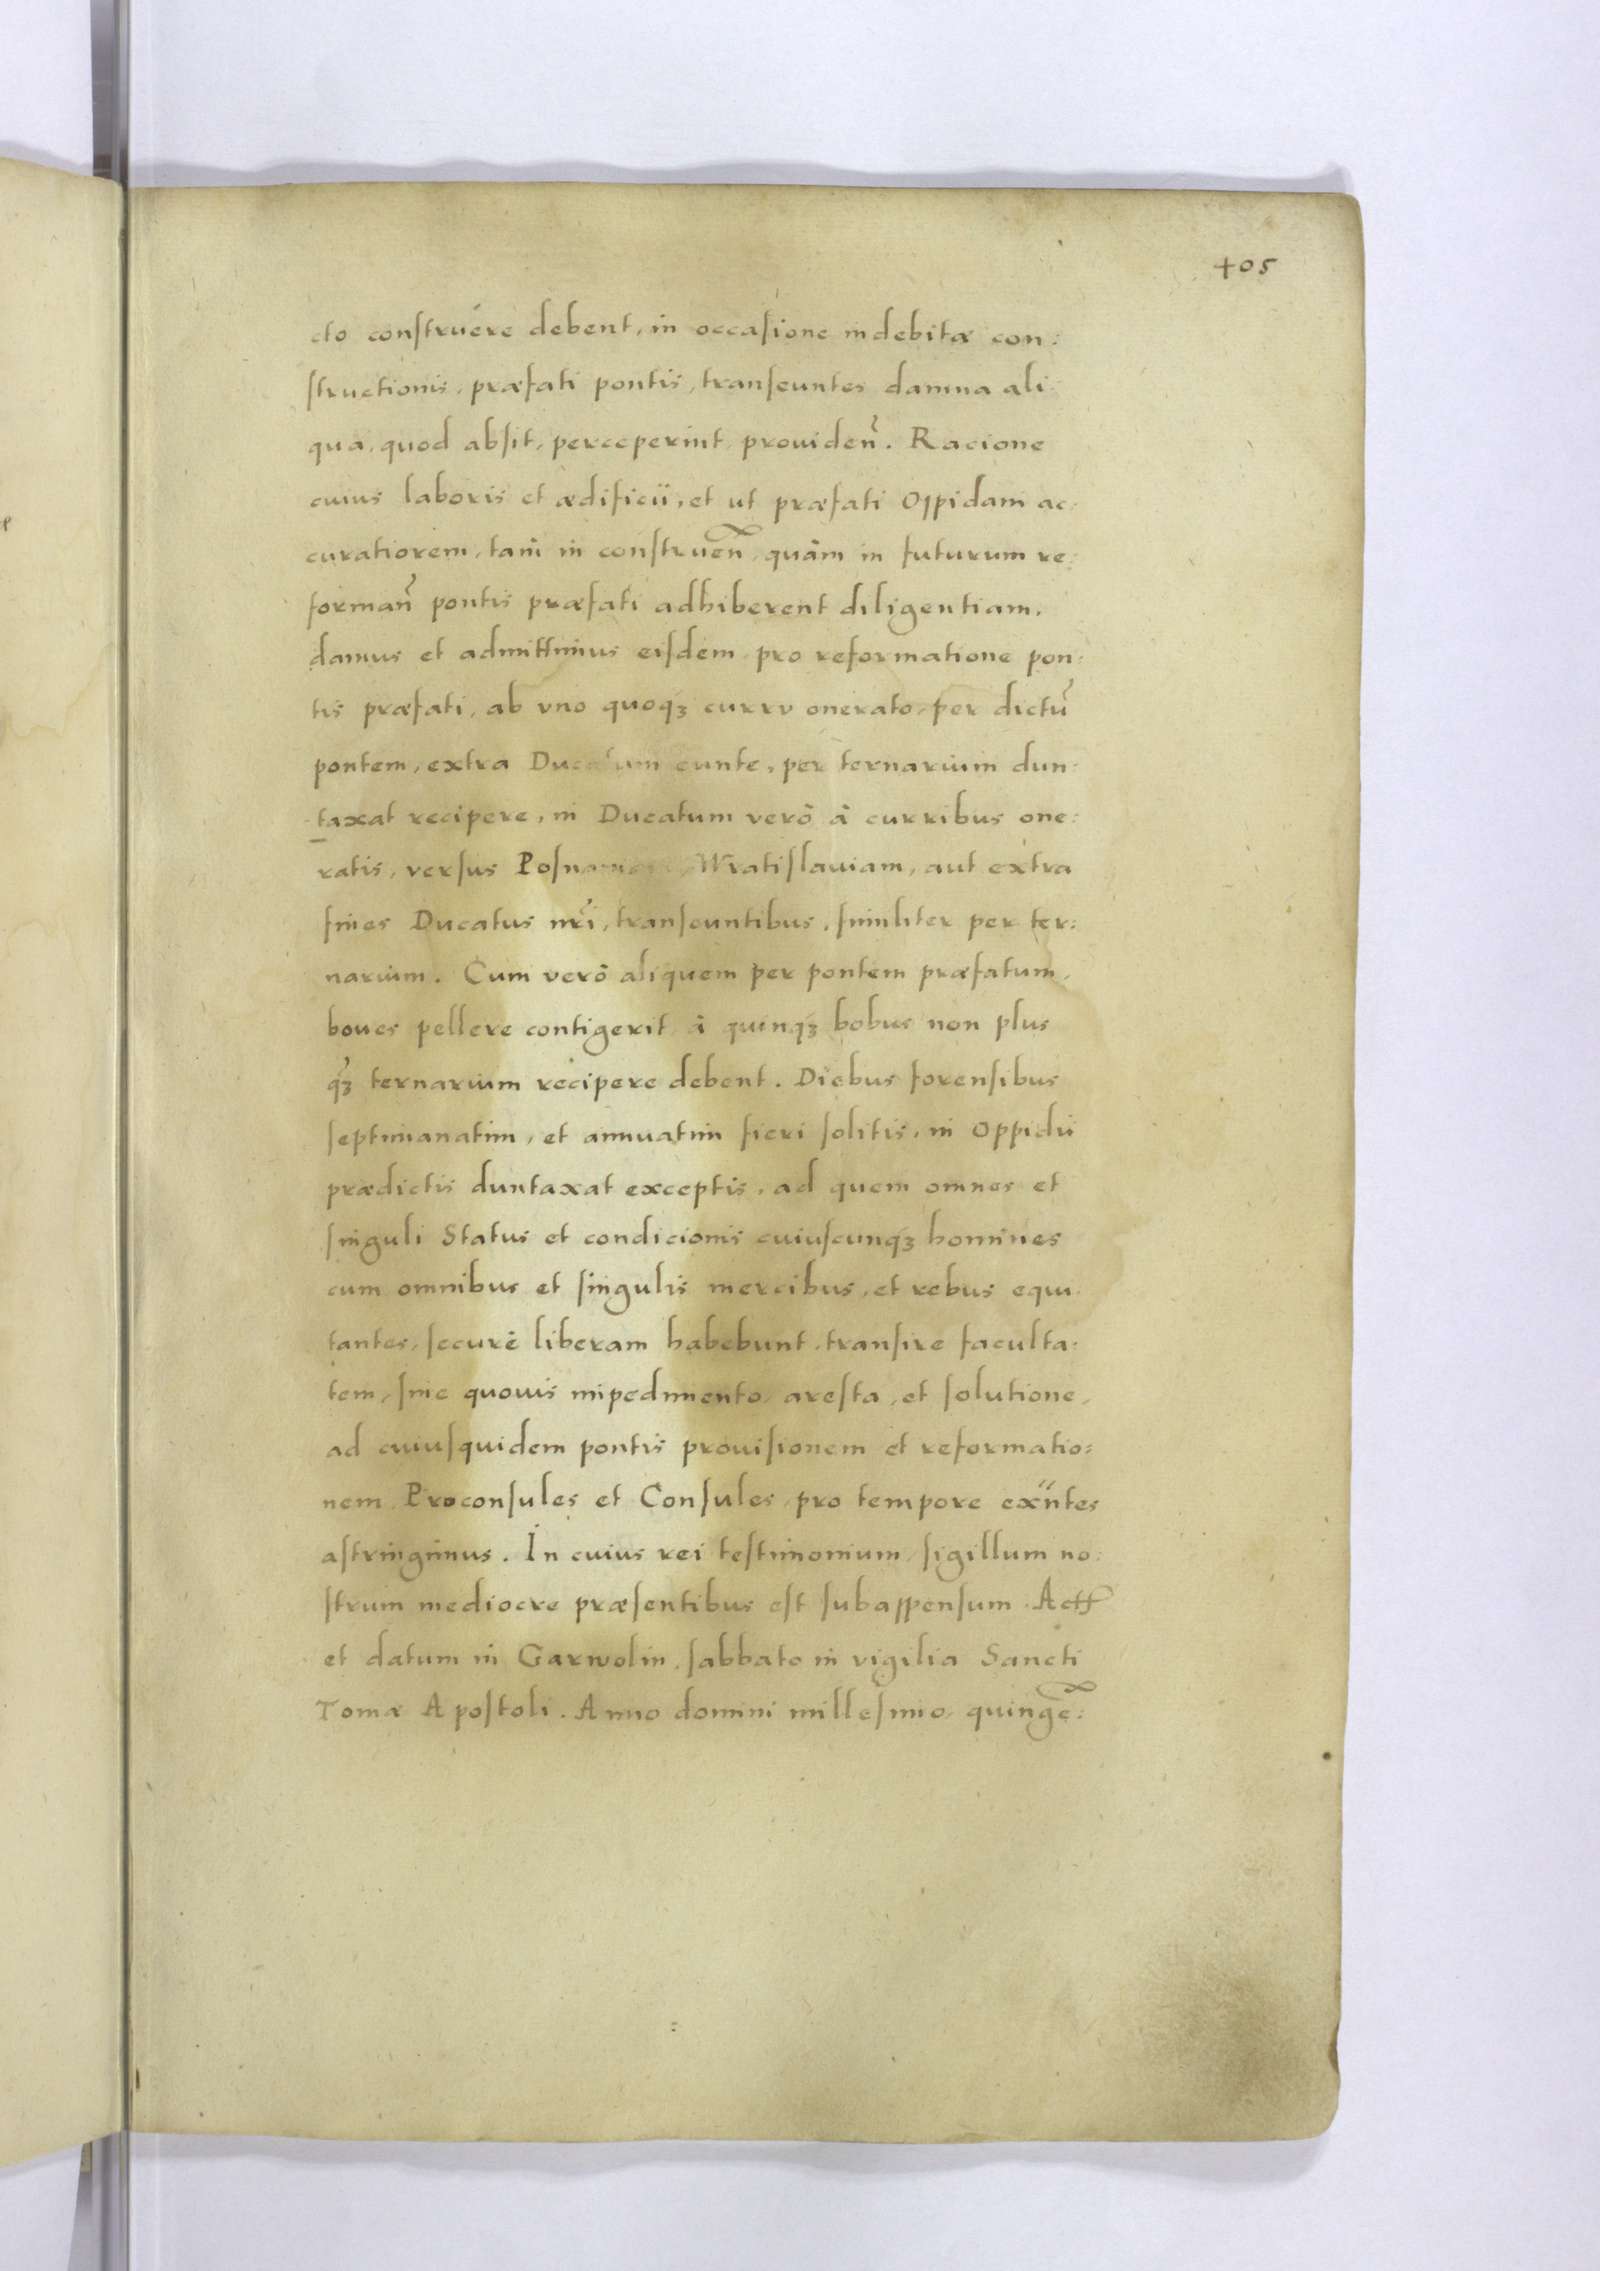 405
cto construére debent, in occasione indebitæ con:
structionis, præfati pontis, transeuntes damna ali
qua, quod absit, perceperint, prouideñ. Racione
cuius laboris et ædificii, et ut præfati Oppidani ac:
curatiorem, tam in construeñ, quàm in futurum re:
formañ pontis præfati adhiberent diligentiam,
damus et admittimus eisdem pro reformatione pon:
tis præfati, ab vno quoqꝫ curru onerato, per dictũ
pontem, extra Ducatum eunte, per ternarium dun:
taxat recipere, in Ducatum verò à curribus one:
ratis, versus Wratislauiam, aut extra
fines Ducatus nr̃i, transeuntibus, similiter per ter:
narium. Cum verò aliquem per pontem præfatum,
boues pellere contigerit, à quinqꝫ bobus non plus
qꝫ ternarium recipere debent. Diebus forensibus
septimanatim, et annuatim fieri solitis, in Oppidũ
prædictis duntaxat exceptis, ad quem omnes et
singuli Status et condicionis cuiuscunqꝫ homines
cum omnibus et singulis mercibus, et rebus equi
tantes, securè liberam habebunt transire faculta:
tem, sine quouis impedimento, aresta, et solutione,
ad cuiusquidem pontis prouisionem et reformatio:
nem, Proconsules et Consules, pro tempore exñtes
astringimus. In cuius rei testimonium, sigillum no:
strum mediocre præsentibus est subappensum. Actũ
et datum in Garwolin, sabbato in vigilia Sancti
Tomæ Apostoli. Anno domini millesimo, quingẽ: